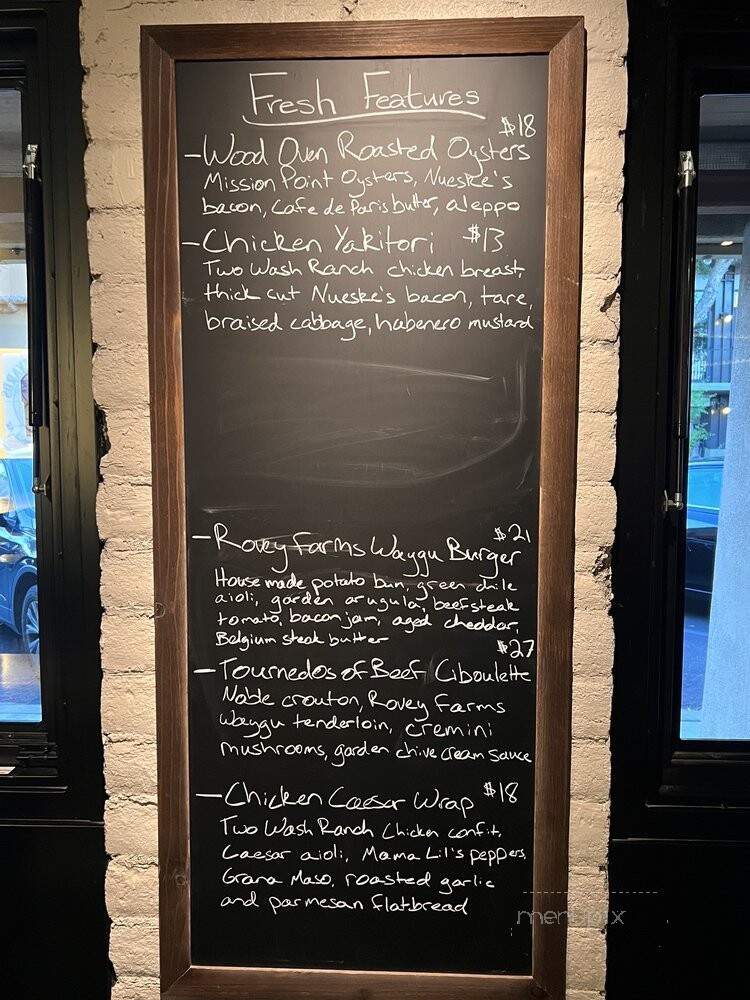 Fresh Features
$18
- Wood Oven Roasted Oysters
Mission Point Oysters, Nueske's
bacon, Cafe de Paris butter, aleppo
- Chicken Yakitori $13
Two Wash Ranch chicken breast,
thick cut Nueske's bacon, tare,
braised cabbage, habenero mustard
$21
- Rovey Farms Waygu Burger
House made potato bun, green chile
aioli, garden arugula, beefsteak
tomato, bacon jam, aged cheddar,
Belgium steak butter
$27
- Tournedos of Beef Ciboulette
Noble crouton, Rovey Farms
Waygu tenderloin, cremini
mushrooms, garden chive cream sauce
- Chicken Caesar Wrap $18
Two Wash Ranch Chicken confit,
Caesar aioli, Mama Lil's peppers,
Grana Maso, roasted garlic
and parmesan flatbread
menupix